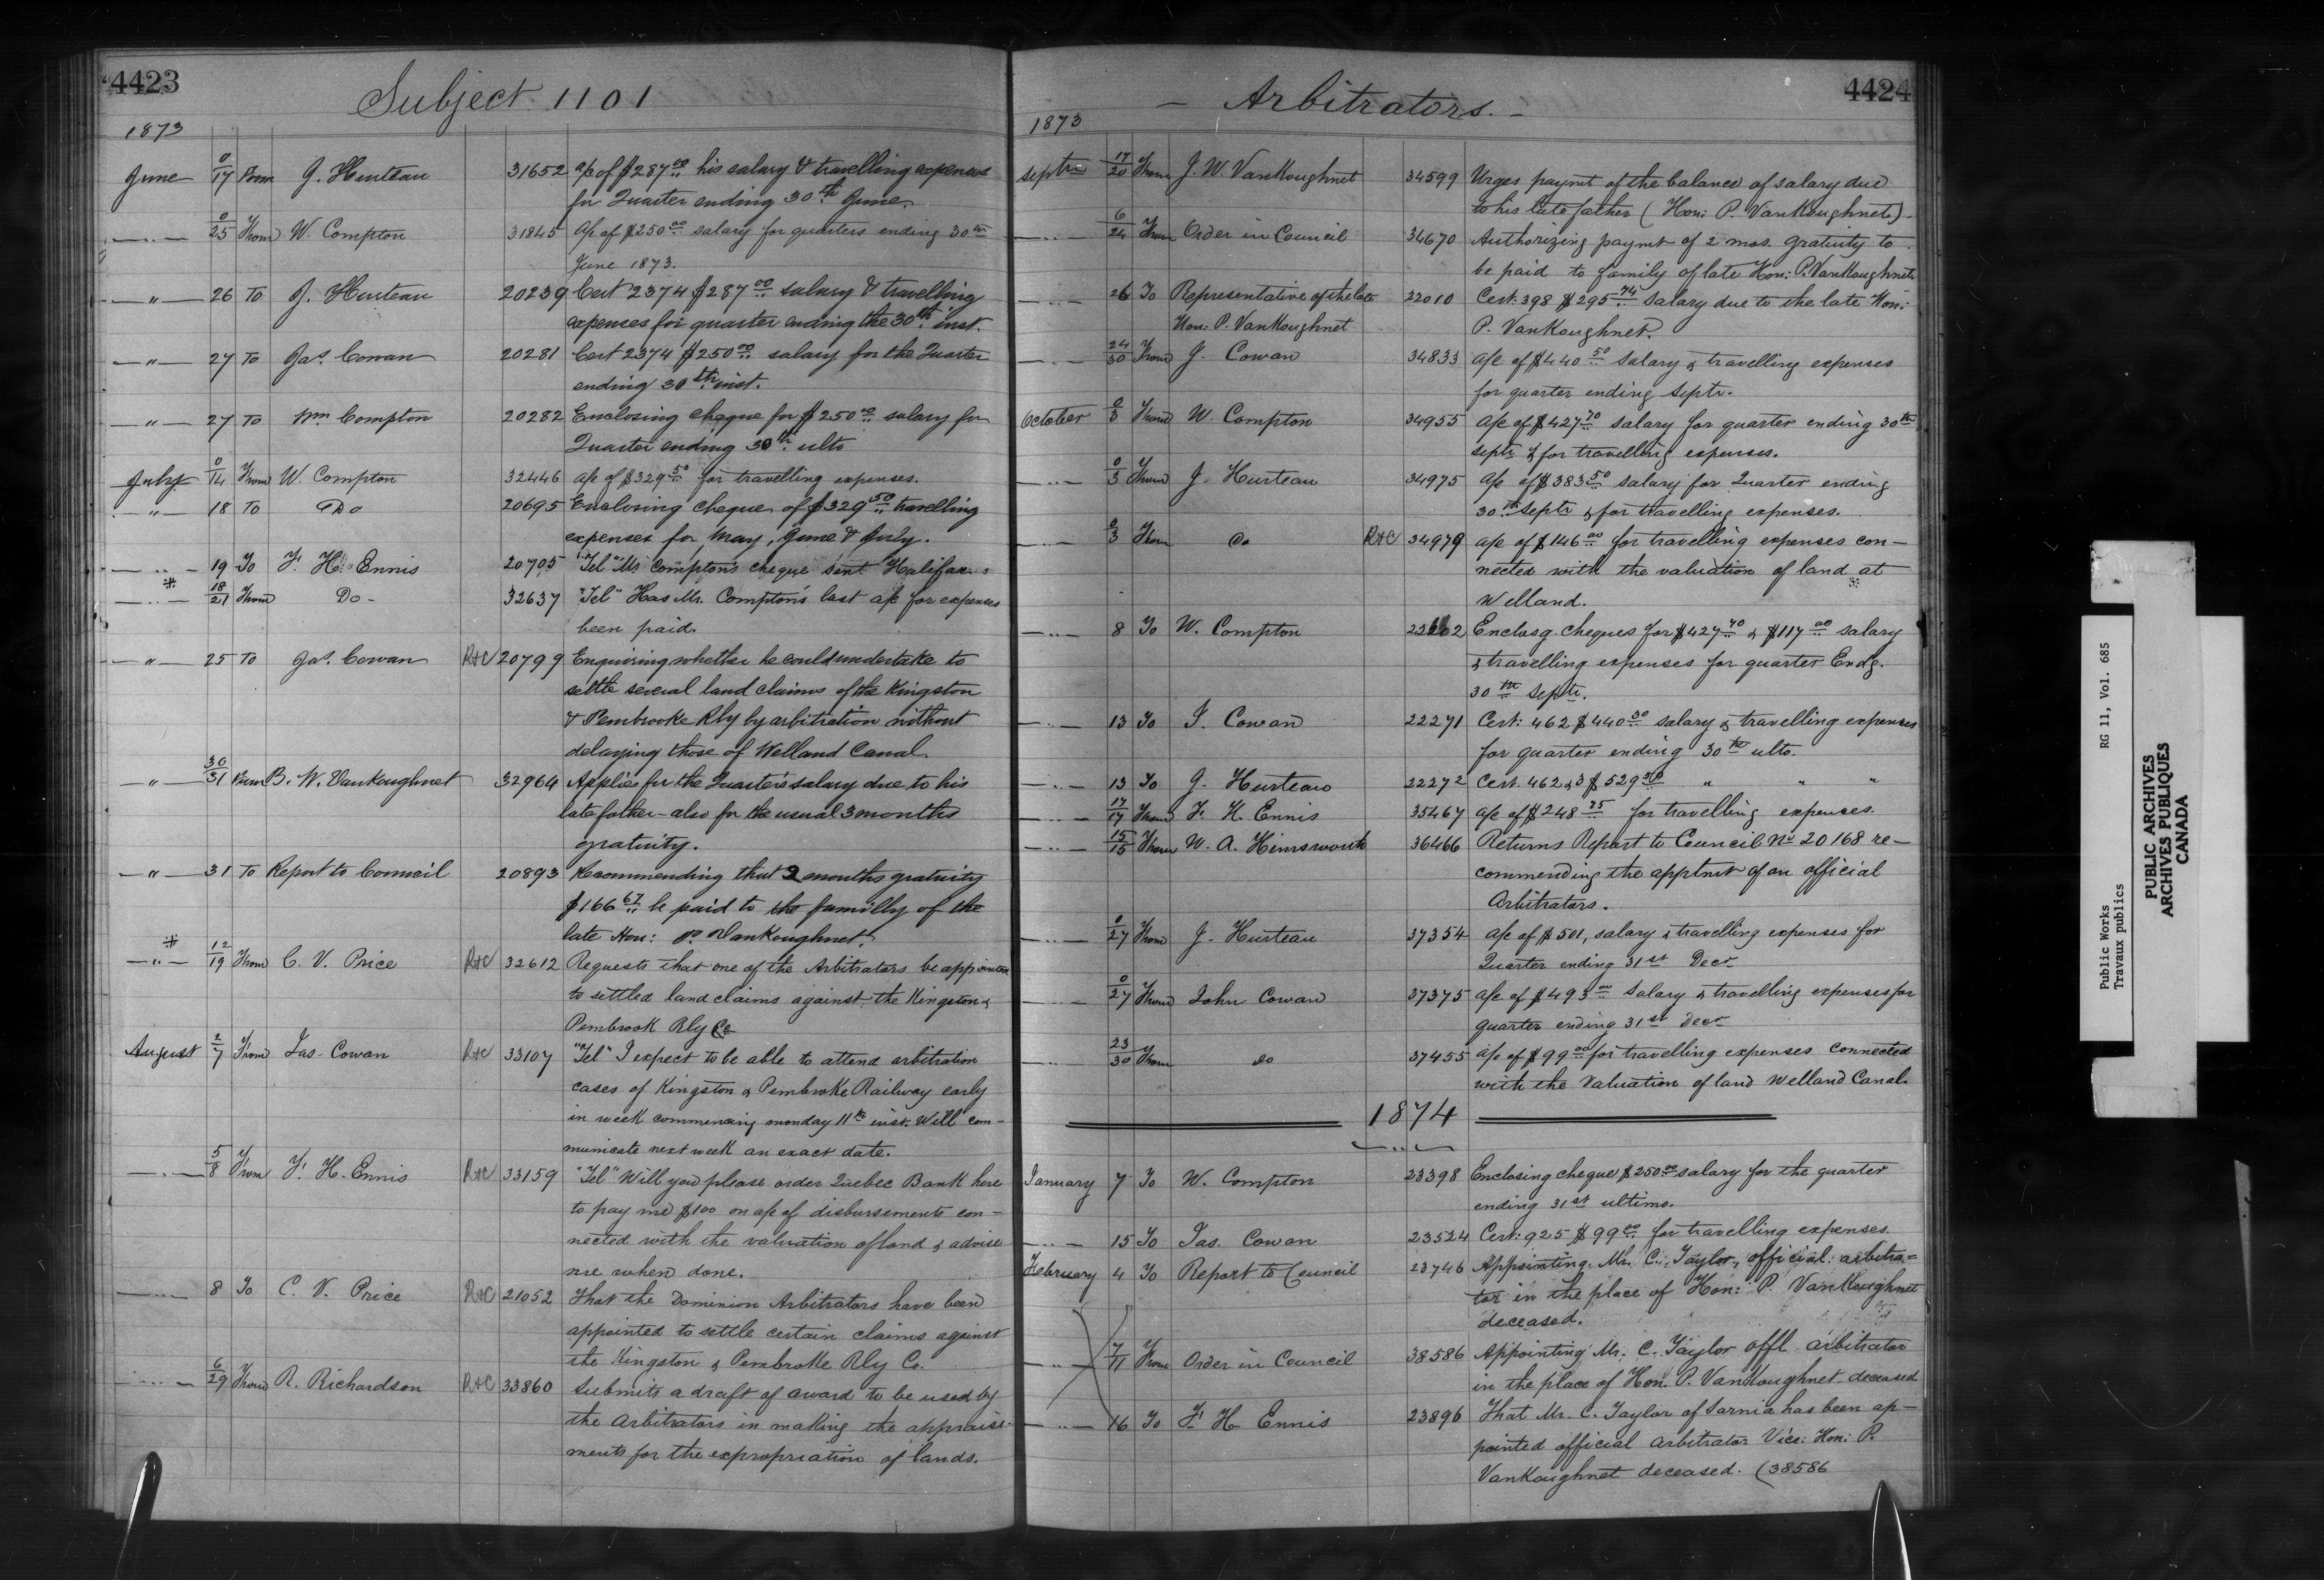 4423
Subject 1101
1873
June 0/17 From J. Hurteau 31652 a/c of $287.00 his salary & travelling expenses
for Quarter ending 30th June.
— " — 0/25 From W. Compton 31845 a/c of $250.00 salary for quarters ending 30th
June 1873.
— " — 26 To J. Hurteau 20239 Cert 2374 $287.00 salary & travelling
expenses for quarter ending the 30th inst.
— " — 27 To Jas. Cowan 20281 Cert 2374 $250.00 salary for the Quarter
ending 30th inst.
— " — 27 To Wm Compton 20282 Enclosing cheque for $250.00 salary for
Quarter ending 30th ulto
July 0/14 From W. Compton 32446 a/c of $329.50 for travelling expenses.
— " — 18 To Do 20695 Enclosing cheque of $329.50 travelling
expenses for May, June & July.
— " — 19 To F. H. Ennis 20705 "Tel" Mr Compton's cheque sent Halifax.
* — " — 18/21 From Do - 32637 "Tel" Has Mr. Compton's last a/c for expenses
been paid.
— " — 25 To Jas. Cowan R&C 20799 Enquiring whether he could undertake to
settle several land claims of the Kingston
& Pembrooke Rly by arbitration without
delaying those of Welland Canal.
— " — 30/31 From B. W. VanKoughnet 32964 Applies for the Quarter's salary due to his
late father - also for the usual 3 months
gratuity.
— " — 31 To Report to Council 20893 Recommending that 2 months gratuity
$166.67 be paid to the familly of the
late Hon: P. VanKoughnet.
* — " — 12/19 From C. V. Price R&C 32612 Requests that one of the Arbitrators be appointed
to settled land claims against the Kingston &
Pembrook Rly Co
August 2/7 From Jas. Cowan R&C 33107 "Tel" I expect to be able to attend arbitration
cases of Kingston & Pembroke Railway early
in week commencing monday 11th inst. Will com-
municate next week an exact date.
— " — 5/8 From F. H. Ennis R&C 33159 "Tel" Will you please order Quebec Bank here
to pay me $100 on a/c of disbursements con-
nected with the valuation of land & advise
me when done.
— " — 8 To C. V. Price R&C 21052 That the Dominion Arbitrators have been
appointed to settle certain claims against
the Kingston & Pembroke Rly Co.
— " — 6/29 From R. Richardson R&C 33860 Submits a draft of award to be used by
the Arbitrators in making the appraise-
ments for the expropriation of lands.
4424
- Arbitrators. -
1873
Septr 17/20 From J. W. VanKoughnet 34599 Urges paymt of the balance of salary due
to his late father (Hon: P. VanKoughnet) -
— " — 6/24 From Order in Council 34670 Authorizing paymt of 2 mos. gratuity to
be paid to family of late Hon: P. VanKoughnet
— " — 26 To Representative of the late 22010 Cert: 398 $295.74 Salary due to the late Hon:
Hon: P. VanKoughnet P. VanKoughnet.
— " — 24/30 From J. Cowan 34833 a/c of $440.50 Salary & travelling expenses
for quarter ending Septr.
October 0/3 From W. Compton 34955 a/c of $427.70 Salary for quarter ending 30th
Septr & for travelling expenses.
— " — 0/3 From J. Hurteau 34975 a/c of $383.50 salary for Quarter ending
30th Septr & for travelling expenses.
— " — 0/3 From do R&C 34979 a/c of $146.00 for travelling expenses con-
nected with the valuation of land at
Welland.
— " — 8 To W. Compton Enclosg. cheques for $427.70 & $117.00 salary
& travelling expenses for quarter Endg.
30th Septr.
— " — 13 To J. Cowan 22271 Cert: 462 $440.50 salary & travelling expenses
for quarter ending 30th ulto.
— " — 13 To J. Hurteau 22272 Cert. 462 & 3 $529.50 " " "
— " — 17/17 From F. H. Ennis 35467 a/c of $248.75 for travelling expenses.
— " — 15/15 From W. A. Himsworth 36466 Returns Report to Council No 20168 re-
commending the apptmt of an official
Arbitrators.
— " — 0/27 From J. Hurteau 37354 a/c of $501, salary & travelling expenses for
Quarter ending 31st Decr
— " — 0/27 From John Cowan 37375 a/c of $493.00 Salary & travelling expenses for
quarter ending 31st Decr
— " — 23/30 From do 37455 a/c of $99.00 for travelling expenses connected
with the Valuation of land Welland Canal.
1874
January 7 To W. Compton 23398 Enclosing cheque $250.00 salary for the quarter
ending 31st ultimo.
— " — 15 To Jas. Cowan 23524 Cert: 925 $99.00 for travelling expenses.
February 4 To Report to Council 23746 Appointing Mr. C. Taylor, official arbitra=
tor in the place of Hon: P. VanKoughnet
deceased.
— " — 7/11 From Order in Council 38586 Appointing Mr. C. Taylor offl arbitrator
in the place of Hon. P. VanKoughnet deceased
— " — 16 To F. H. Ennis 23896 That Mr. C. Taylor of Sarnia has been ap-
pointed official arbitrator Vice: Hon: P.
VanKoughnet deceased. (38586
Public Works RG 11, Vol. 685
Travaux publics
PUBLIC ARCHIVES
ARCHIVES PUBLIQUES
CANADA